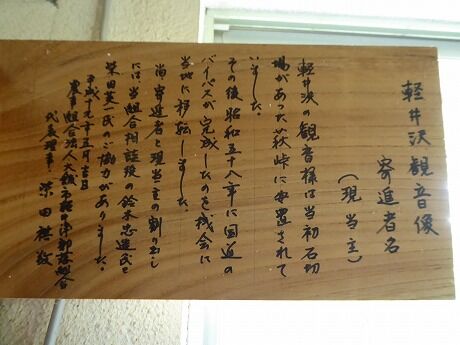 軽井沢観音像
寄進者名
(現当主)
軽井沢の観音様は当初石切
場があった萩峠に安置されて
いました。
その後昭和五十八年に国道の
バイパスが完成したのを機会に
当地に移転しました。
尚寄進者と現当主の割り出し
には、当組合相談役の鈴木忠進氏と
柴田英一氏のご協力がありました。
平成十九年五月吉日
農事組合法人
代表理事 柴田